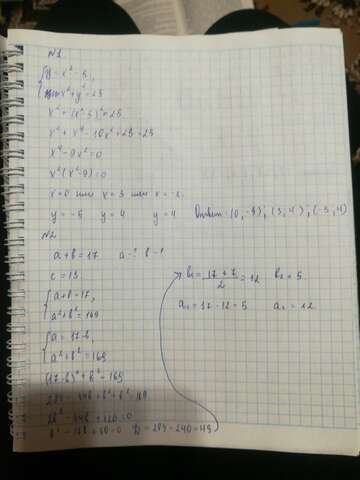 N1
{y = x² - 5,
x² + y² = 25
x² + (x² - 5)² = 25
x² + x⁴ - 10x² + 25 = 25
x⁴ - 9x² = 0
x²(x² - 9) = 0
x = 0 или x = 3 или x = -3
y = -5 y = 4 y = 4 Ответ: (0, -5); (3, 4); (-3, 4)
N2
a + b = 17 a - ? b - ?
c = 13
{a + b = 17,
a² + b² = 169
{a = 17 - b,
a² + b² = 169
(17 - b)² + b² = 169
289 - 34b + b² + b² = 169
2b² - 34b + 120 = 0
b² - 17b + 60 = 0 D = 289 - 240 = 49
b₁ = (17 + 7)/2 = 12 b₂ = 5
a₁ = 17 - 12 = 5 a₂ = 12